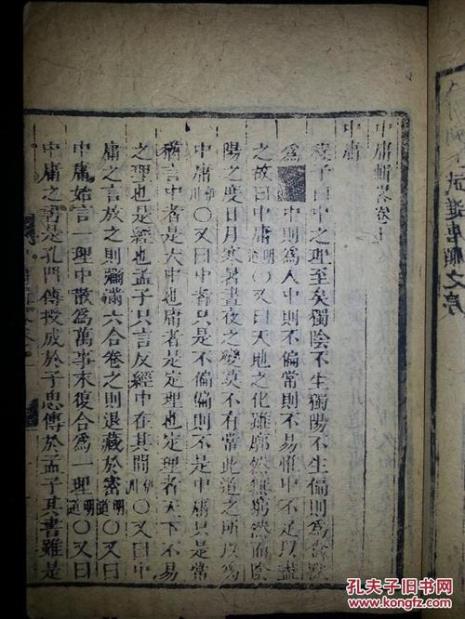 中庸輯畧卷上
中庸
程子曰中之理至矣獨陰不生獨陽不生偏則爲禽獸
爲 中則爲人中則不偏常則不易惟中不足以盡
之故曰中庸明道〇又曰天地之化雖廓然無窮然而陰
陽之度日月寒暑晝夜之變莫不有常此道之所以爲
中庸伊川〇又曰中者只是不偏偏則不是中庸只是常
猶言中者是大中也庸者是定理也定理者天下不易
之理也是經也孟子只言反經中在其間伊川〇又曰中
庸之言放之則彌滿六合卷之則退藏於密明道〇又曰
中庸始言一理中散爲萬事末復合爲一理明道〇又曰
中庸之書是孔門傳授成於子思傳於孟子其書雖是
之序
孔夫子旧书网
www.kongfz.com